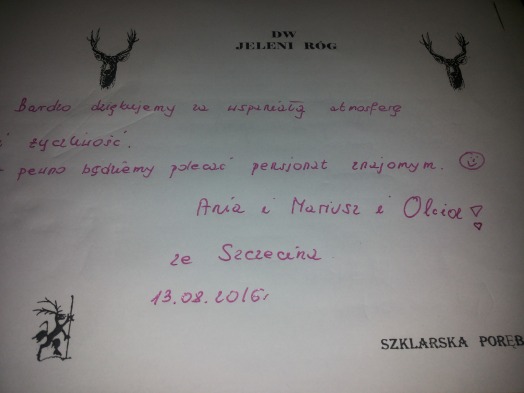 DW
JELENI RÓG
Bardzo dziękujemy za wspaniałą atmosferę
i życzliwość.
pewno będziemy polecać pensjonat znajomym.
Ania i Mariusz i Olcia!
ze Szczecina
13.08.2016r
SZKLARSKA PORĘB